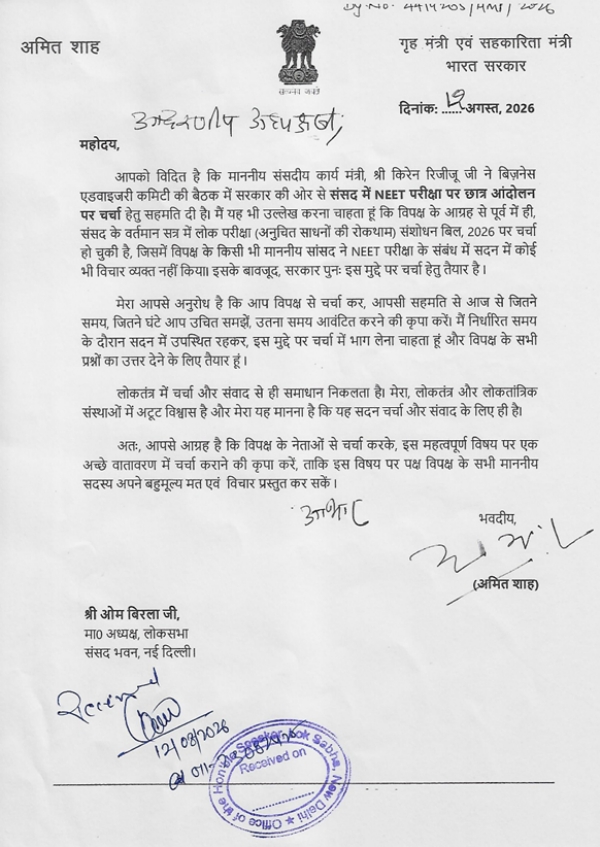 Dy. No. 4414205/HMP/2026
अमित शाह
सत्यमेव जयते
गृह मंत्री एवं सहकारिता मंत्री
भारत सरकार
दिनांक: 12 अगस्त, 2026
आदरणीय अध्यक्षजी,
महोदय,
आपको विदित है कि माननीय संसदीय कार्य मंत्री, श्री किरेन रिजीजू जी ने बिज़नेस
एडवाइजरी कमिटी की बैठक में सरकार की ओर से संसद में NEET परीक्षा पर छात्र आंदोलन
पर चर्चा हेतु सहमति दी है। मैं यह भी उल्लेख करना चाहता हूं कि विपक्ष के आग्रह से पूर्व में ही,
संसद के वर्तमान सत्र में लोक परीक्षा (अनुचित साधनों की रोकथाम) संशोधन बिल, 2026 पर चर्चा
हो चुकी है, जिसमें विपक्ष के किसी भी माननीय सांसद ने NEET परीक्षा के संबंध में सदन में कोई
भी विचार व्यक्त नहीं किया। इसके बावजूद, सरकार पुनः इस मुद्दे पर चर्चा हेतु तैयार है ।
मेरा आपसे अनुरोध है कि आप विपक्ष से चर्चा कर, आपसी सहमति से आज से जितने
समय, जितने घंटे आप उचित समझें, उतना समय आवंटित करने की कृपा करें। मैं निर्धारित समय
के दौरान सदन में उपस्थित रहकर, इस मुद्दे पर चर्चा में भाग लेना चाहता हूं और विपक्ष के सभी
प्रश्नों का उत्तर देने के लिए तैयार हूं ।
लोकतंत्र में चर्चा और संवाद से ही समाधान निकलता है। मेरा, लोकतंत्र और लोकतांत्रिक
संस्थाओं में अटूट विश्वास है और मेरा यह मानना है कि यह सदन चर्चा और संवाद के लिए ही है।
अतः, आपसे आग्रह है कि विपक्ष के नेताओं से चर्चा करके, इस महत्वपूर्ण विषय पर एक
अच्छे वातावरण में चर्चा कराने की कृपा करें, ताकि इस विषय पर पक्ष विपक्ष के सभी माननीय
सदस्य अपने बहुमूल्य मत एवं विचार प्रस्तुत कर सकें ।
आभार
भवदीय,
(अमित शाह)
श्री ओम बिरला जी,
मा0 अध्यक्ष, लोकसभा
संसद भवन, नई दिल्ली।
Received
12/08/2026
Office of the Hon'ble Speaker, Lok Sabha, New Delhi
Received on